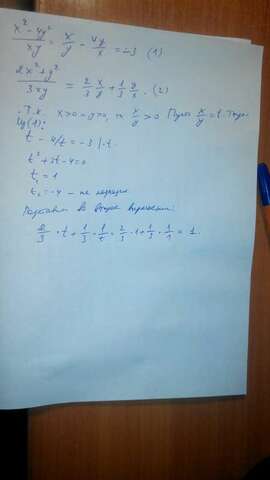 x² - 4y² / xy = x/y - 4y/x = -3 (1)
2x² + y² / 3xy = 2/3 x/y + 1/3 y/x. (2)
Т.к. x>0 и y>0, то x/y > 0 Пусть x/y = t. Тогда
Из (1):
t - 4/t = -3 | ·t.
t² + 3t - 4 = 0
t₁ = 1
t₂ = -4 – не подходит
Подставим во второе выражение:
2/3 · t + 1/3 · 1/t = 2/3 · 1 + 1/3 · 1/1 = 1.